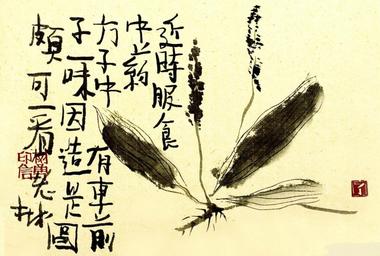 近時服食
中艸药
方子中有車前
子一味因造是圖
頗可一看老